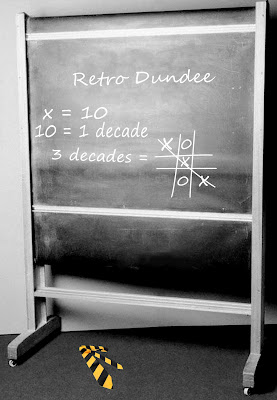 Retro Dundee
x = 10
10 = 1 decade
3 decades =
x 0
x
0 x